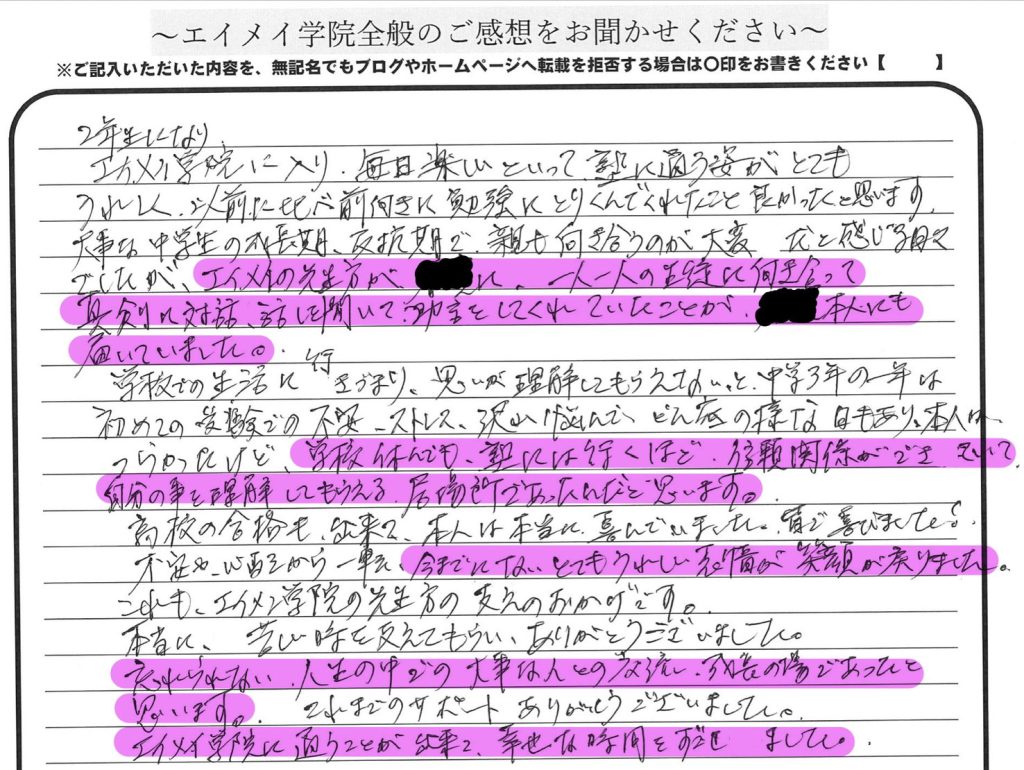 ～エイメイ学院全般のご感想をお聞かせください～
※ご記入いただいた内容を、無記名でもブログやホームページへ転載を拒否する場合は〇印をお書きください【　　】
2年生になり
エイメイ学院に入り、毎日楽しいといって、塾に通う姿がとても
うれしく、以前に比べ前向きに勉強にとりくんでくれたこと良かったと思います。
大事な中学生の成長期、反抗期で、親も向き合うのが大変 だと感じる日々
でしたが、エイメイの先生方が、に、一人一人の生徒に向き合って
真剣に対話、話しを聞いて、助言をしてくれていたことが、本人にも
届いていました。
学校での生活に行きづまり、思いが理解してもらえない、と、中学3年の一年は
初めての受験での不安、ストレス、沢山悩んで、どん底の様な日もあり、本人は
つらかったけど、学校休んでも、塾には行くほど、信頼関係ができていて
自分の事を理解してもらえる、居場所であったんだと思います。
高校の合格も、出来て、本人は本当に、喜んでいました。皆で喜びました。
不安や、心配から一転、今までにない、とてもうれしい表情が笑顔が戻りました。
これも、エイメイ学院の先生方の支えのおかげです。
本当に、苦しい時を支えてもらい、ありがとうございました。
忘れられない、人生の中での大事な人との交流、成長の場であったと
思います。これまでのサポートありがとうございました。
エイメイ学院に通うことが出来て、幸せな時間をすごしました。